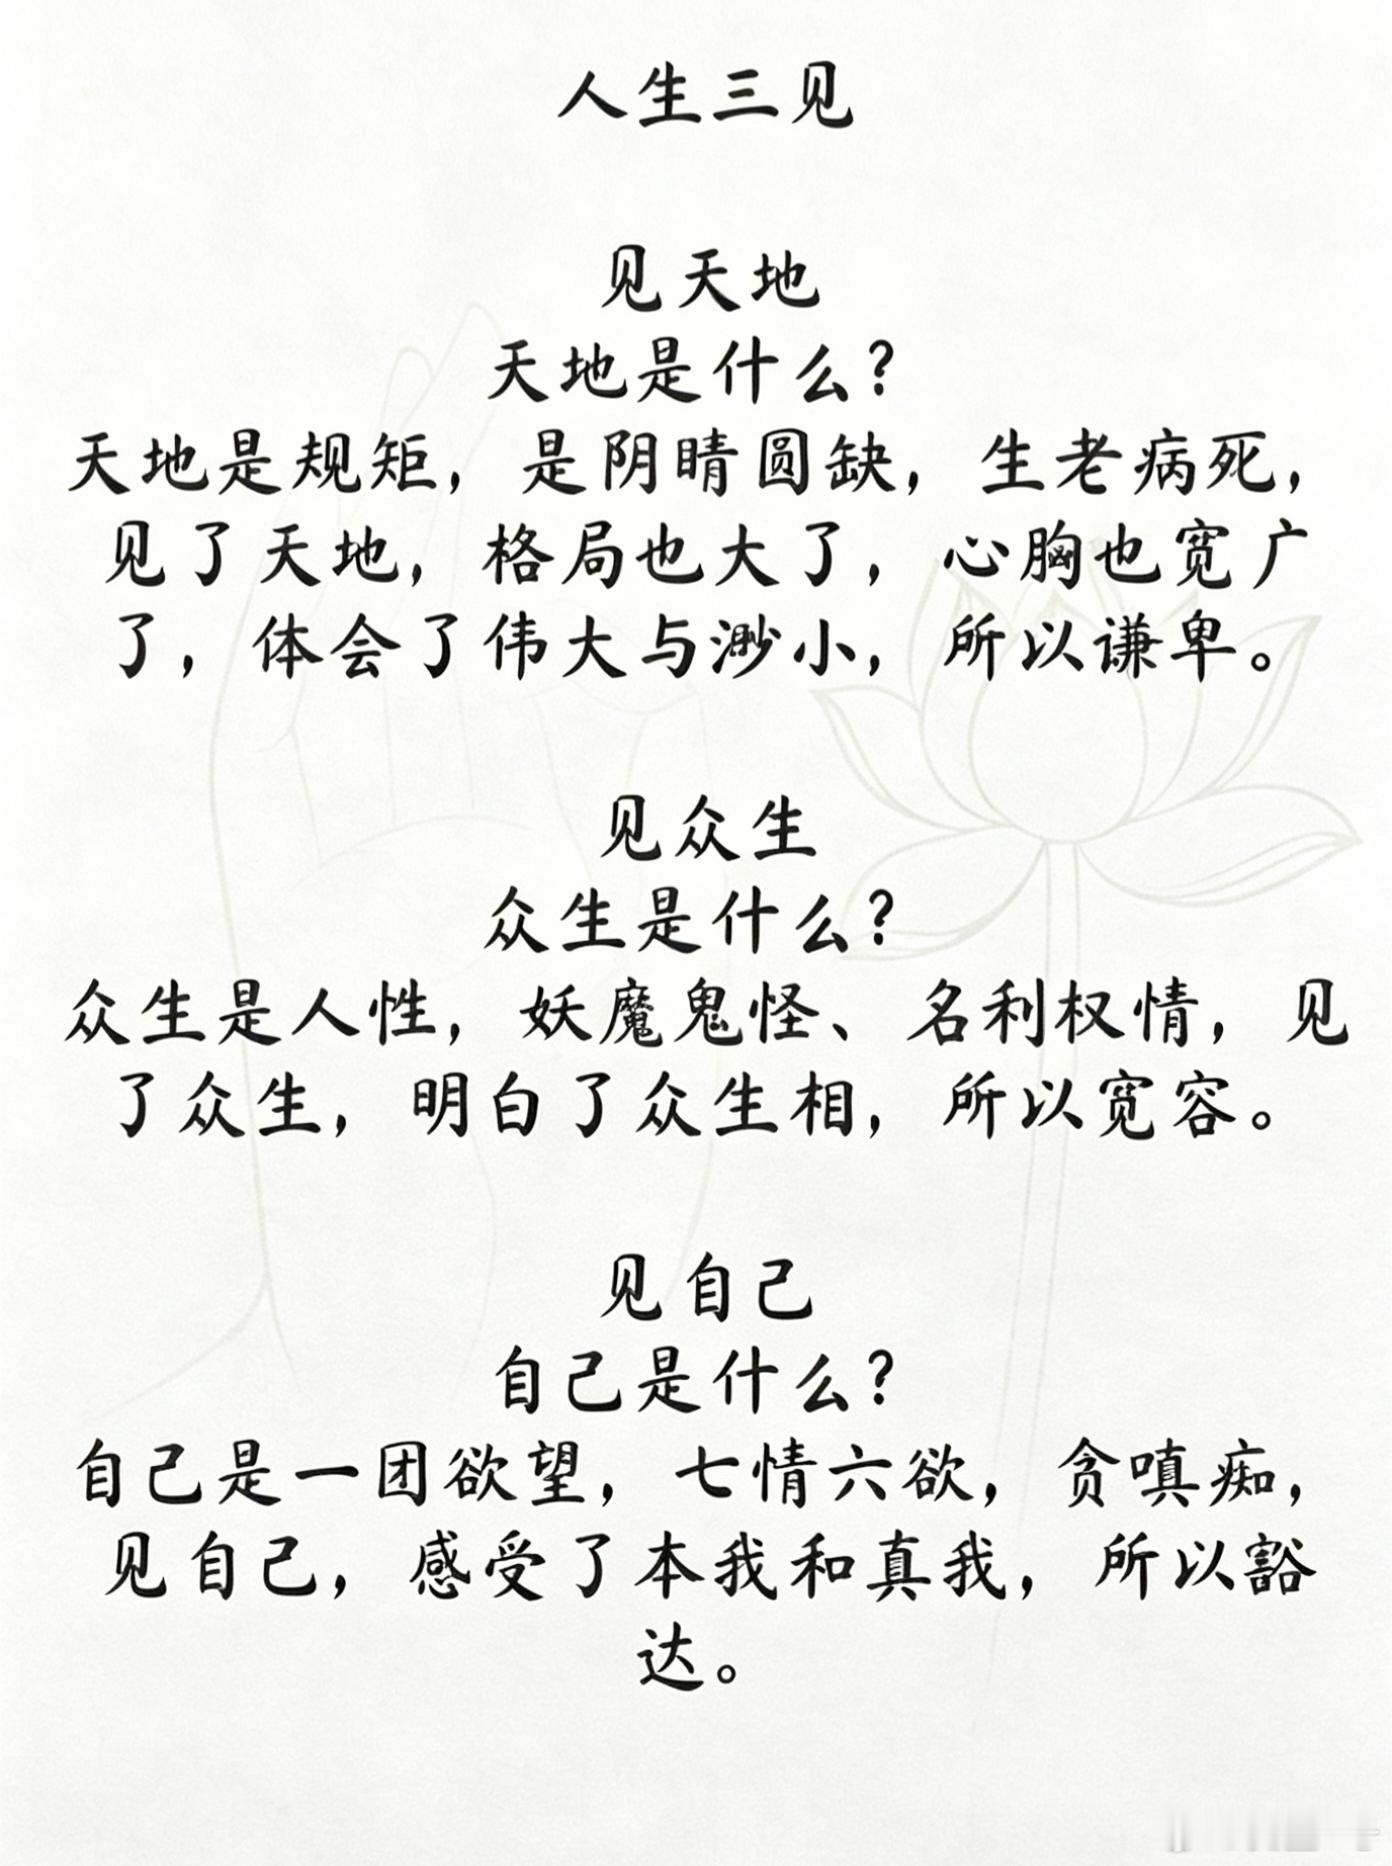 人生三见
见天地
天地是什么？
天地是规矩，是阴晴圆缺，生老病死，
见了天地，格局也大了，心胸也宽广
了，体会了伟大与渺小，所以谦卑。
见众生
众生是什么？
众生是人性，妖魔鬼怪、名利权情，见
了众生，明白了众生相，所以宽容。
见自己
自己是什么？
自己是一团欲望，七情六欲，贪嗔痴，
见自己，感受了本我和真我，所以豁
达。